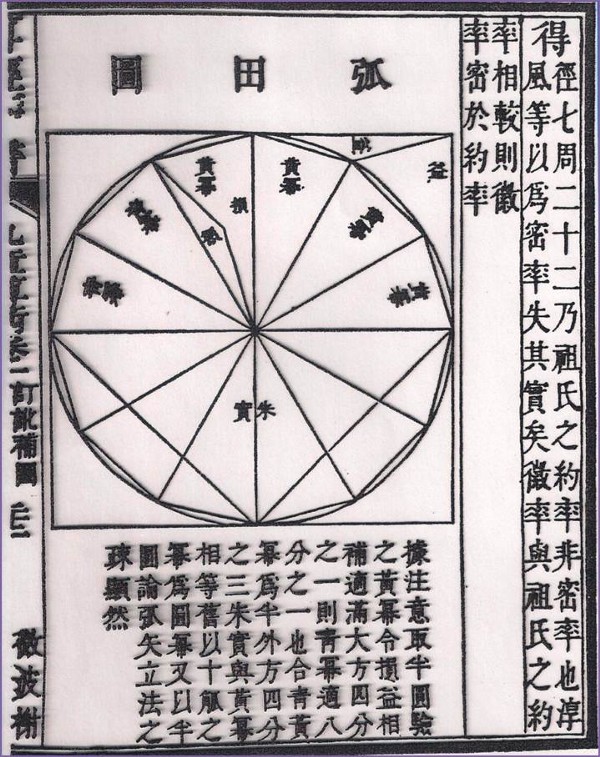 得徑七周二十二乃祖氏之約率非密率也淳
風等以爲密率失其實矣徽率與祖氏之約
率相較則徽
率密於約率
弧田圖
益
黃冪
黃冪
損
朱實
據注意取半圓驗
之黃冪令損益相
補適滿大方四分
之一則靑冪適八
分之一也合靑黃
冪爲半外方四分
之三朱實與黃冪
相等舊以十觚之
冪爲圓冪又以半
圓論弧矢立法之
疎顯然
九章算術卷一訂訛補圖
微波榭